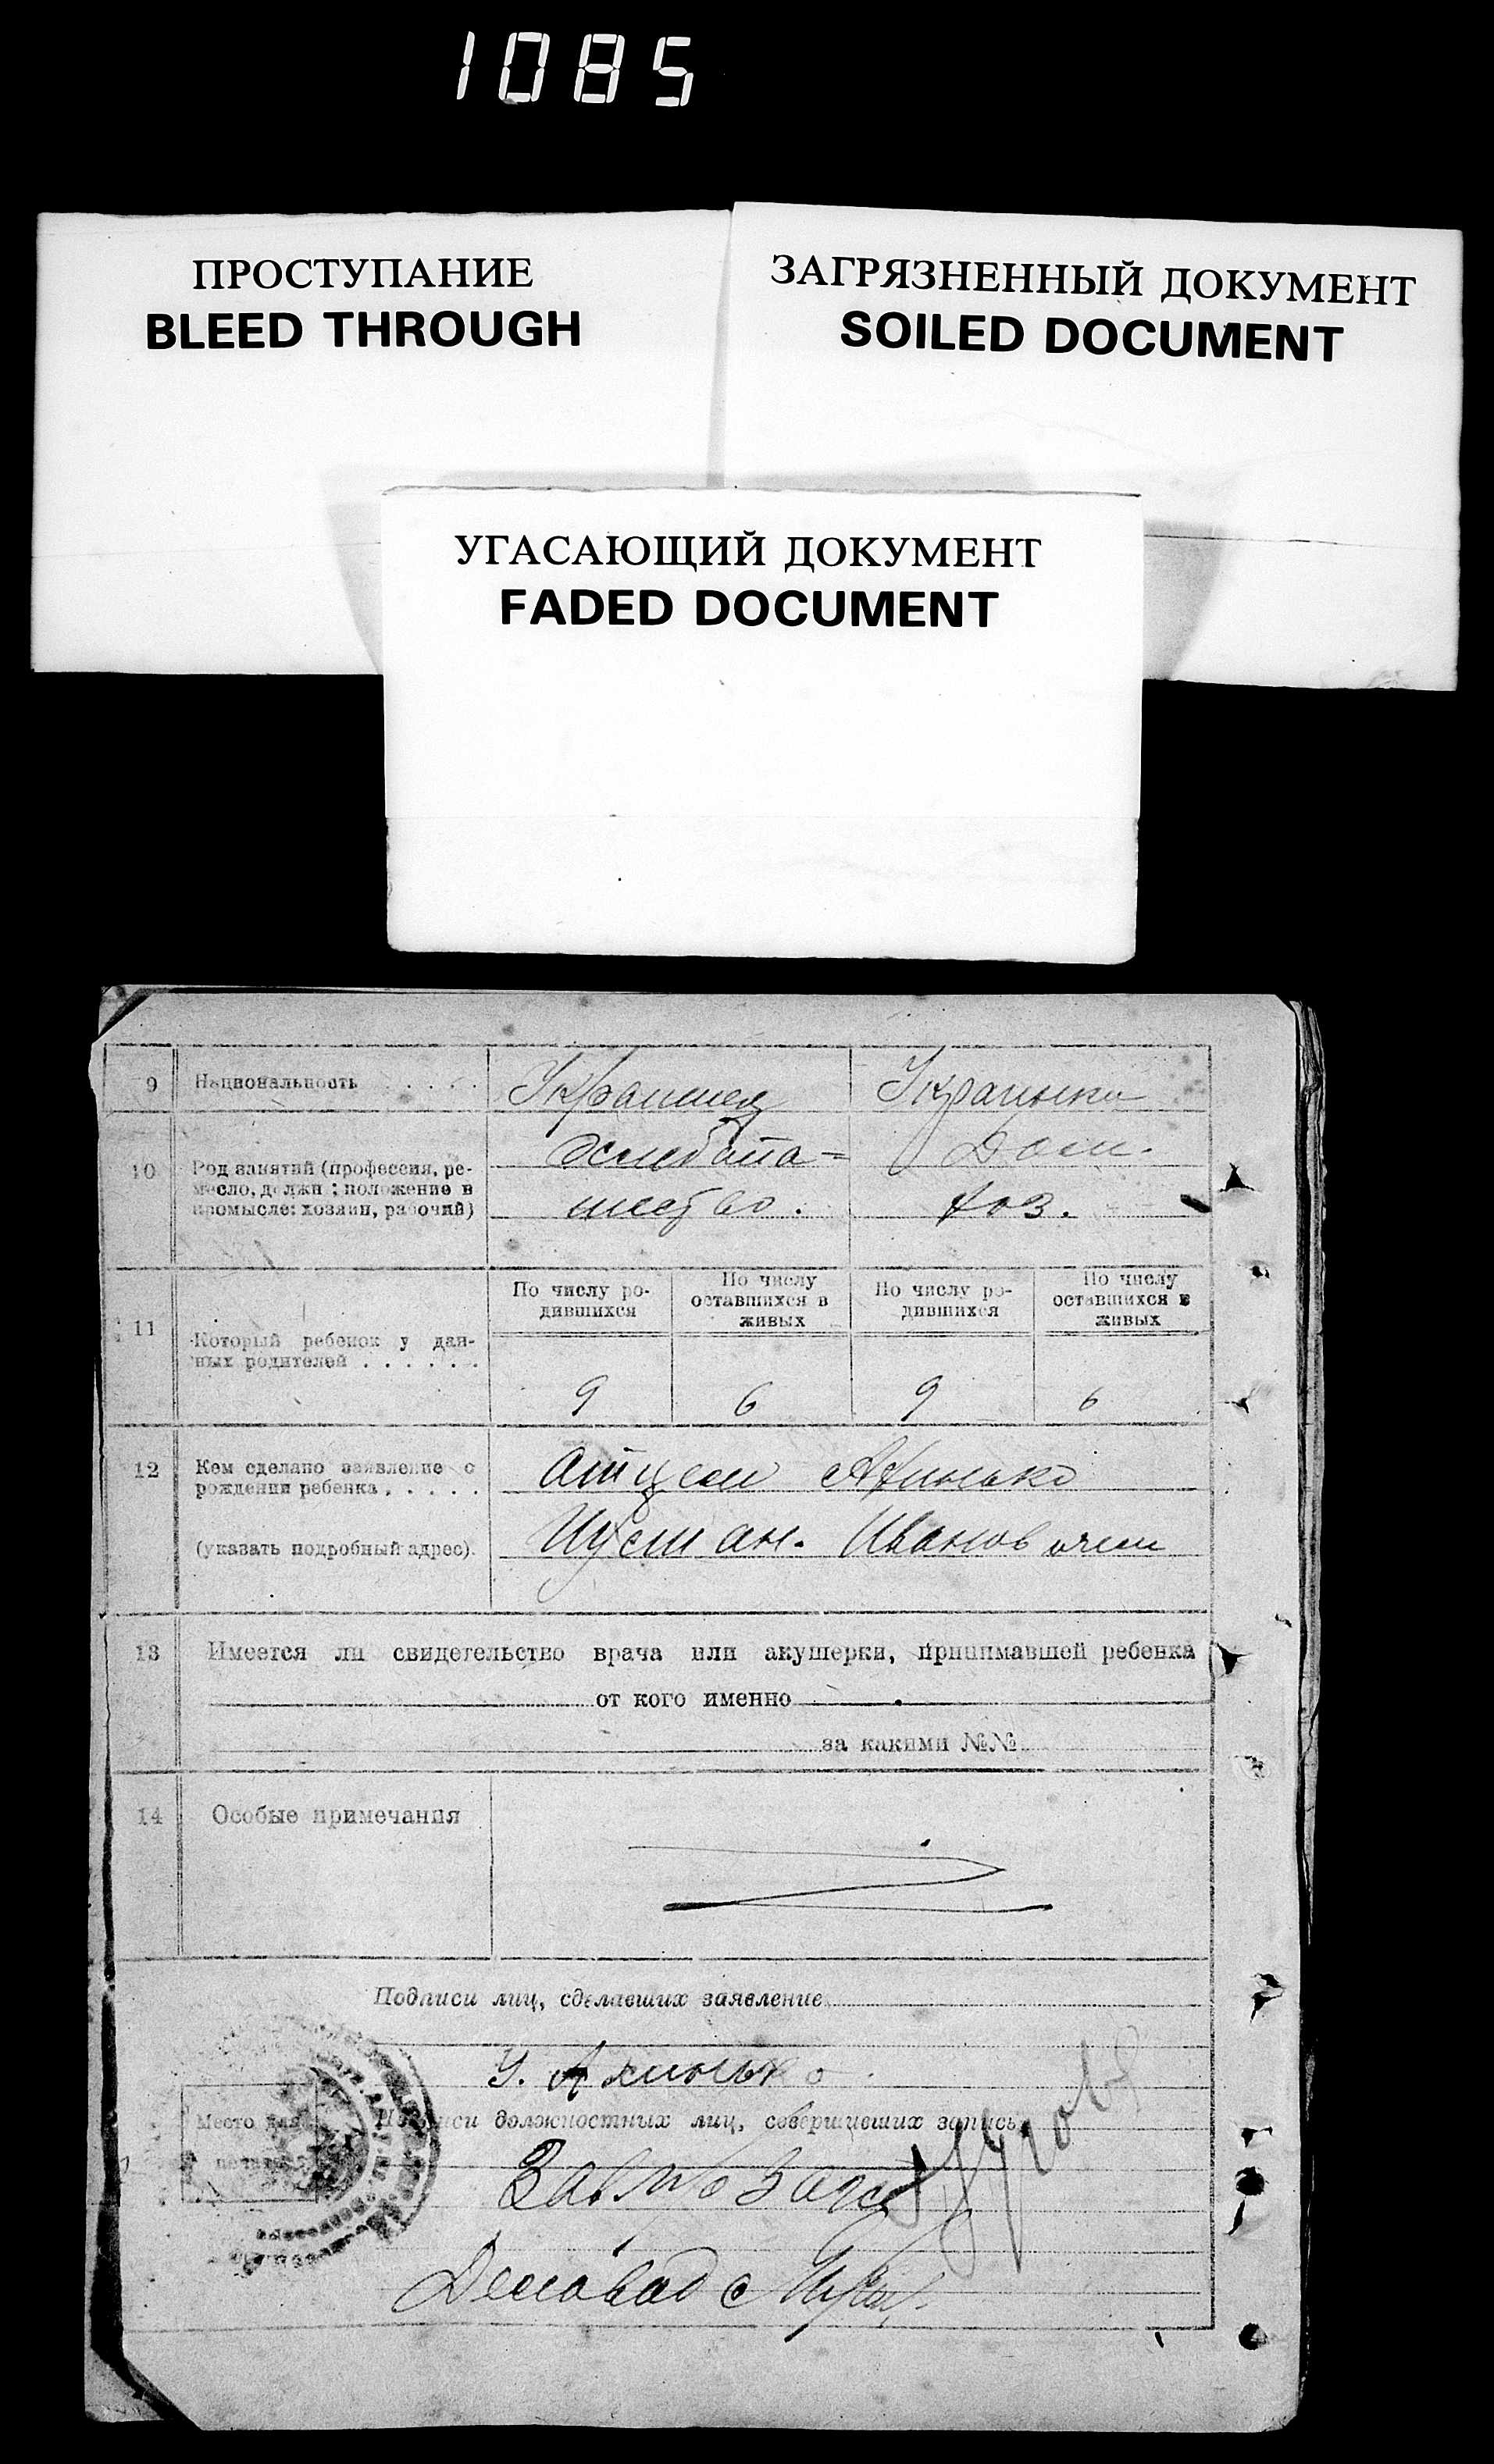 1085
ПРОСТУПАНИЕ
BLEED THROUGH
ЗАГРЯЗНЕННЫЙ ДОКУМЕНТ
SOILED DOCUMENT
УГАСАЮЩИЙ ДОКУМЕНТ
FADED DOCUMENT
9 Национальность . . . . . Украинец Украинка
10 Род занятий (профессия, ре-
месло, должн; положение в
промысле: хозяин, рабочий)
хлебопа=
шество.
Дом.
хоз.
11 Который ребенок у дан-
ных родителей . . . . . .
По числу ро-
дившихся
По числу
оставшихся в
живых
По числу ро-
дившихся
По числу
оставшихся в
живых
9 6 9 6
12 Кем сделано заявление о
рождении ребенка . . . . .
(указать подробный адрес).
Отцем Ахинько
Иванов ичем
13 Имеется ли свидетельство врача или акушерки, принимавшей ребенка
от кого именно
за какими №№
14 Особые примечания
Подписи лиц, сделавших заявление
У. Ахинько
Место для
печати
Подписи должностных лиц, совершивших запись
Зав
Деловод